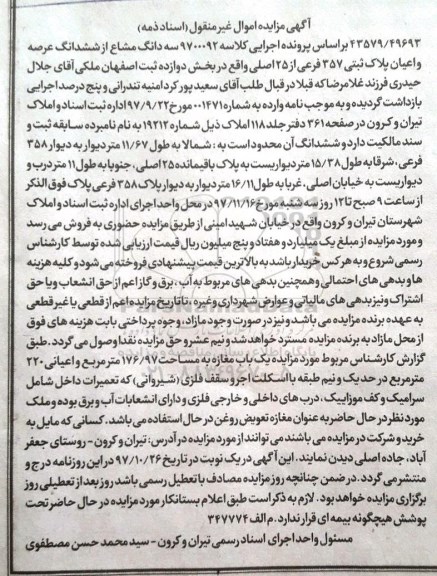 آگهی مزایده اموال غیر منقول (اسناد ذمه)
۴۳۵۷۹/۴۹۶۹۳ بر اساس پرونده اجرایی کلاسه ۹۷۰۰۰۹۲ سه دانگ مشاع از ششدانگ عرصه
و اعیان پلاک ثبتی ۳۵۷ فرعی از ۲۵ اصلی واقع در بخش دوازده ثبت اصفهان ملکی آقای جلال
حیدری فرزند غلامرضا که قبلا در قبال طلب آقای سعید پور کرد امنیه تندرانی و پنج درصد اجرایی
بازداشت گردیده و به موجب نامه وارده به شماره ۰۰۱۴۷۱ مورخ ۹۷/۹/۲۲ اداره ثبت اسناد و املاک
تیران و کرون در صفحه ۳۶۱ دفتر جلد ۱۱۸ املاک ذیل شماره ۱۹۲۱۲ به نام نامبرده سابقه ثبت و
سند مالکیت دارد و ششدانگ آن محدود است به : شمالا به طول ۱۱/۶۷ متر دیوار به دیوار ۳۵۸
فرعی، شرقا به طول ۱۵/۳۸ متر دیواریست به پلاک باقیمانده ۲۵ اصلی، جنوبا به طول ۱۱ متر درب و
دیواریست به خیابان اصلی، غربا به طول ۱۶/۱۱ متر دیوار به دیوار پلاک ۳۵۸ فرعی پلاک فوق الذکر
از ساعت ۹ صبح تا ۱۲ روز سه شنبه مورخ ۹۷/۱۱/۱۶ در محل واحد اجرای اداره ثبت اسناد و املاک
شهرستان تیران و کرون واقع در خیابان شهید امینی از طریق مزایده حضوری به فروش می رسد
و مورد مزایده از مبلغ یک میلیارد و هفتاد و پنج میلیون ریال قیمت ارزیابی شده توسط کارشناس
رسمی شروع و به هر کس خریدار باشد به بالاترین قیمت پیشنهادی فروخته می شود و کلیه هزینه
ها و بدهی های احتمالی و همچنین بدهی های مربوط به آب، برق و گاز اعم از حق انشعاب و یا حق
اشتراک و نیز بدهی های مالیاتی و عوارض شهرداری و غیره، تا تاریخ مزایده اعم از قطعی یا غیر قطعی
به عهده برنده مزایده می باشد و نیز در صورت وجود مازاد، وجوه پرداختی بابت هزینه های فوق
از محل مازاد به برنده مزایده مسترد خواهد شد و نیم عشر و حق مزایده نقدا وصول می گردد. طبق
گزارش کارشناس مربوط مورد مزایده یک باب مغازه به مساحت ۱۷۶/۹۷ متر مربع و اعیانی ۲۲۰
متر مربع در حد یک و نیم طبقه با اسکلت اجر و سقف فلزی (شیروانی) که تعمیرات داخل شامل
سرامیک و کف موزاییک، درب های داخلی و خارجی فلزی و دارای انشعابات آب و برق بوده و ملک
مورد نظر در حال حاضر به عنوان مغازه تعویض روغن در حال استفاده می باشد. کسانی که مایل به
خرید و شرکت در مزایده می باشند می توانند از مورد مزایده در آدرس: تیران و کرون - روستای جعفر
آباد، جاده اصلی دیدن نمایند. این آگهی در یک نوبت در تاریخ ۹۷/۱۰/۲۶ در این روزنامه درج و
منتشر می گردد. در ضمن چنانچه روز مزایده مصادف با تعطیل رسمی باشد روز بعد از تعطیلی روز
برگزاری مزایده خواهد بود. لازم به ذکر است طبق اعلام بستانکار مورد مزایده در حال حاضر تحت
پوشش هیچگونه بیمه ای قرار ندارد. م الف ۳۴۷۷۷۴
مسئول واحد اجرای اسناد رسمی تیران و کرون - سید محمد حسن مصطفوی